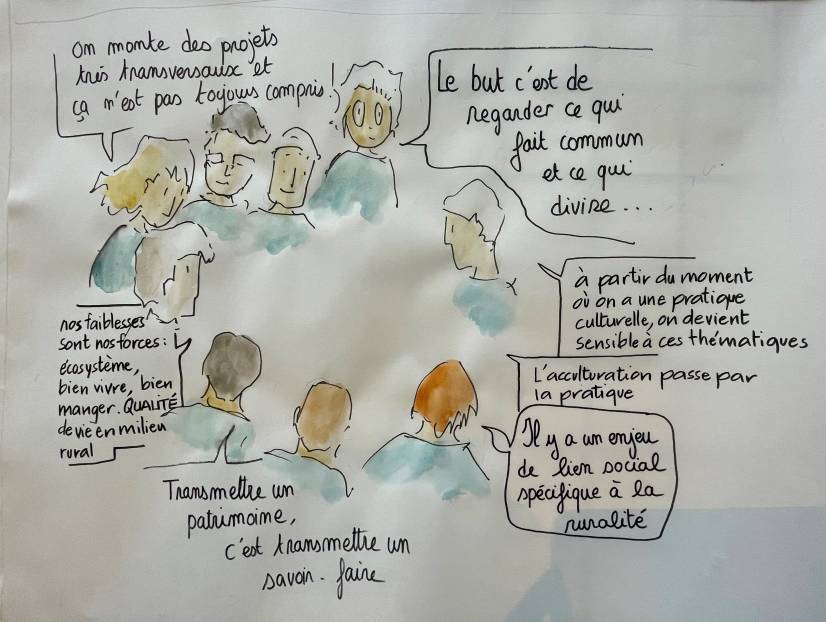 on monte des projets
très transversaux et
ça n'est pas toujours compris !
Le but c'est de
regarder ce qui
fait commun
et ce qui
divise...
à partir du moment
où on a une pratique
culturelle, on devient
sensible à ces thématiques
L'acculturation passe par
la pratique
Il y a un enjeu
de lien social
spécifique à la
ruralité
nos faiblesses
sont nos forces :
écosystème,
bien vivre, bien
manger. QUALITÉ
de vie en milieu
rural
Transmettre un
patrimoine,
c'est transmettre un
savoir-faire